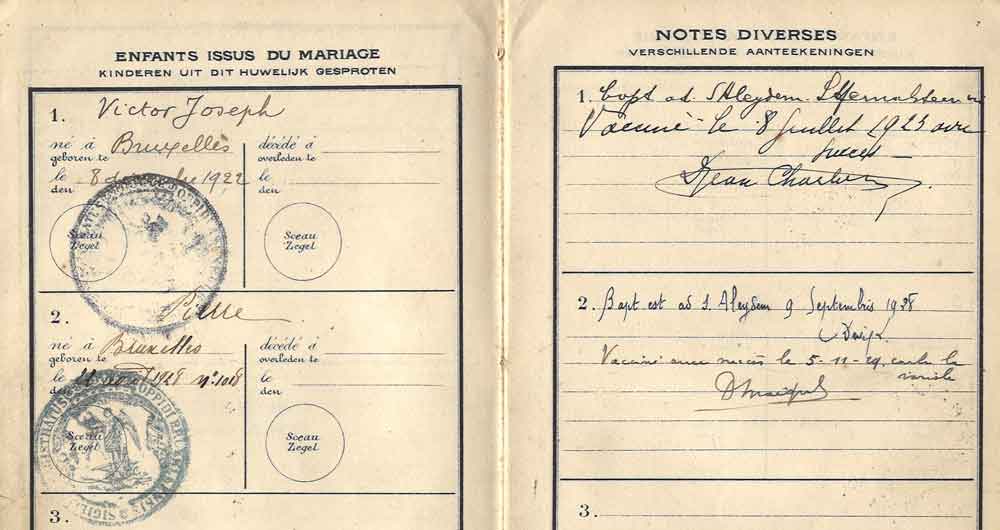 ENFANTS ISSUS DU MARIAGE
KINDEREN UIT DIT HUWELIJK GESPROTEN
1. Victor Joseph
né à Bruxelles
geboren te
le 8 1922
den
Sceau
Zegel
décédé à
overleden te
le
den
Sceau
Zegel
2. Pierre
né à Bruxelles
geboren te
le 22 août 1928 nº 1018
den
Sceau
Zegel
décédé à
overleden te
le
den
Sceau
Zegel
3.
NOTES DIVERSES
VERSCHILLENDE AANTEEKENINGEN
1. Bapt ad S Aleydem
Vacciné le 8 Juillet 1923 avec
succès
Jean
2. Bapt est ad S. Aleydem 9 Septembris 1928
Vacciné avec succès le 5-11-29 contre la
variole
3.